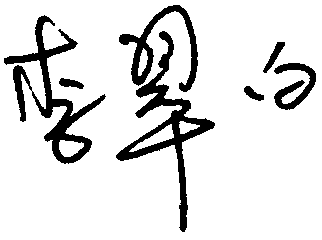 李翠白